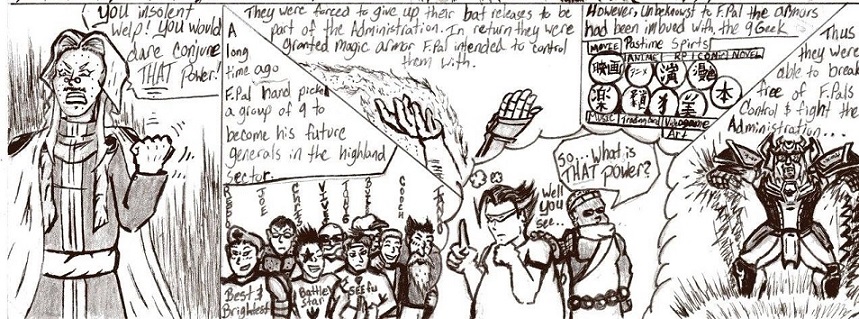 You insolent
welp! You would
dare conjure
THAT Power!
A
long
time ago
F.Pal hand picked
a group of 9 to
become his future
generals in the highland
sector.
They were forced to give up their bat releases to be
part of the Administration. In return they were
granted magic armor F.Pal intended to control
them with.
However, Unbeknowst to F.Pal the armors
had been imbued with the 9 Geek
Pastime Spirits
MOVIE ANIME RPG COMIC NOVEL
映画 アニメ 漫 本
楽
MUSIC Trading Card Videogame
Art
Thus
they were
able to break
free of F.Pals
Control & fight the
Administration...
JOE
COOCH
Best &
Brightest
Battle
Star
SEEfu
Well
you
see...
So... what is
THAT power?